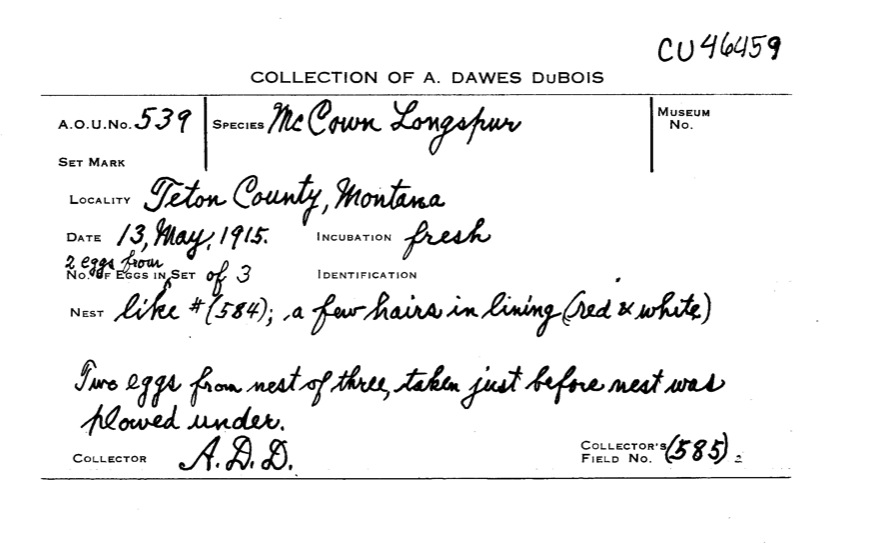 CU46459
COLLECTION OF A. DAWES DUBOIS
A.O.U.No. 539 SPECIES McCown Longspur MUSEUM No.
SET MARK
LOCALITY Teton County, Montana
DATE 13, May, 1915. INCUBATION fresh
2 eggs from
NO. OF EGGS IN SET of 3 IDENTIFICATION
NEST like #(584); a few hairs in lining (red & white)
Two eggs from nest of three, taken just before nest was
plowed under.
COLLECTOR A.D.D. COLLECTOR'S FIELD NO. (585)